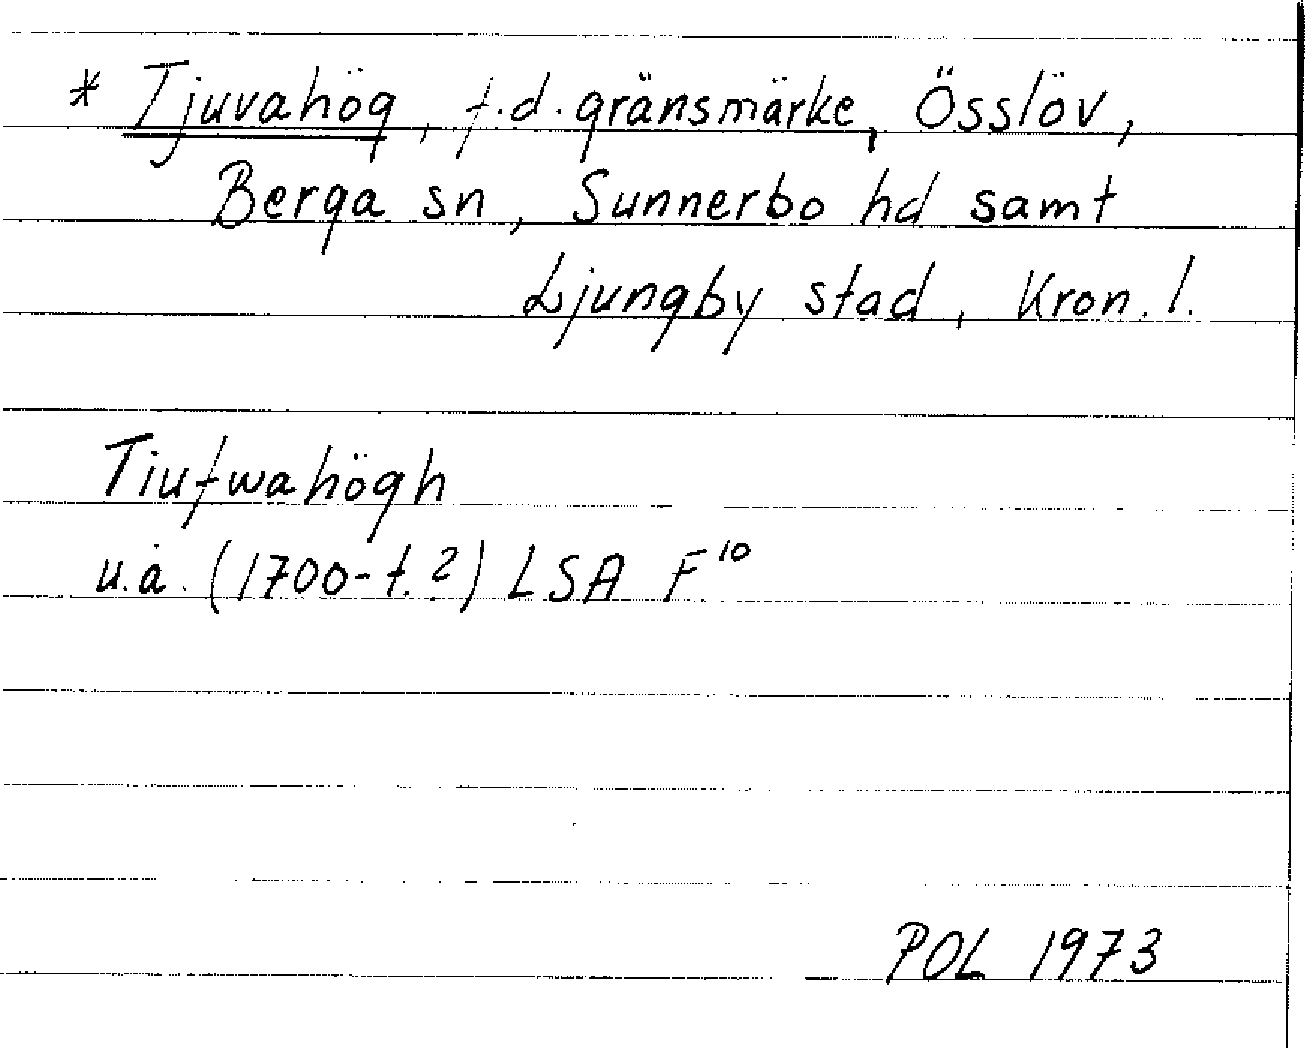 * Tjuvahög, f.d. gränsmärke, Össlöv,
Berga sn, Sunnerbo hd samt
Ljungby stad, Kron. l.
Tiufwahögh
u.å. (1700-t.?) LSA F¹⁰
POL 1973